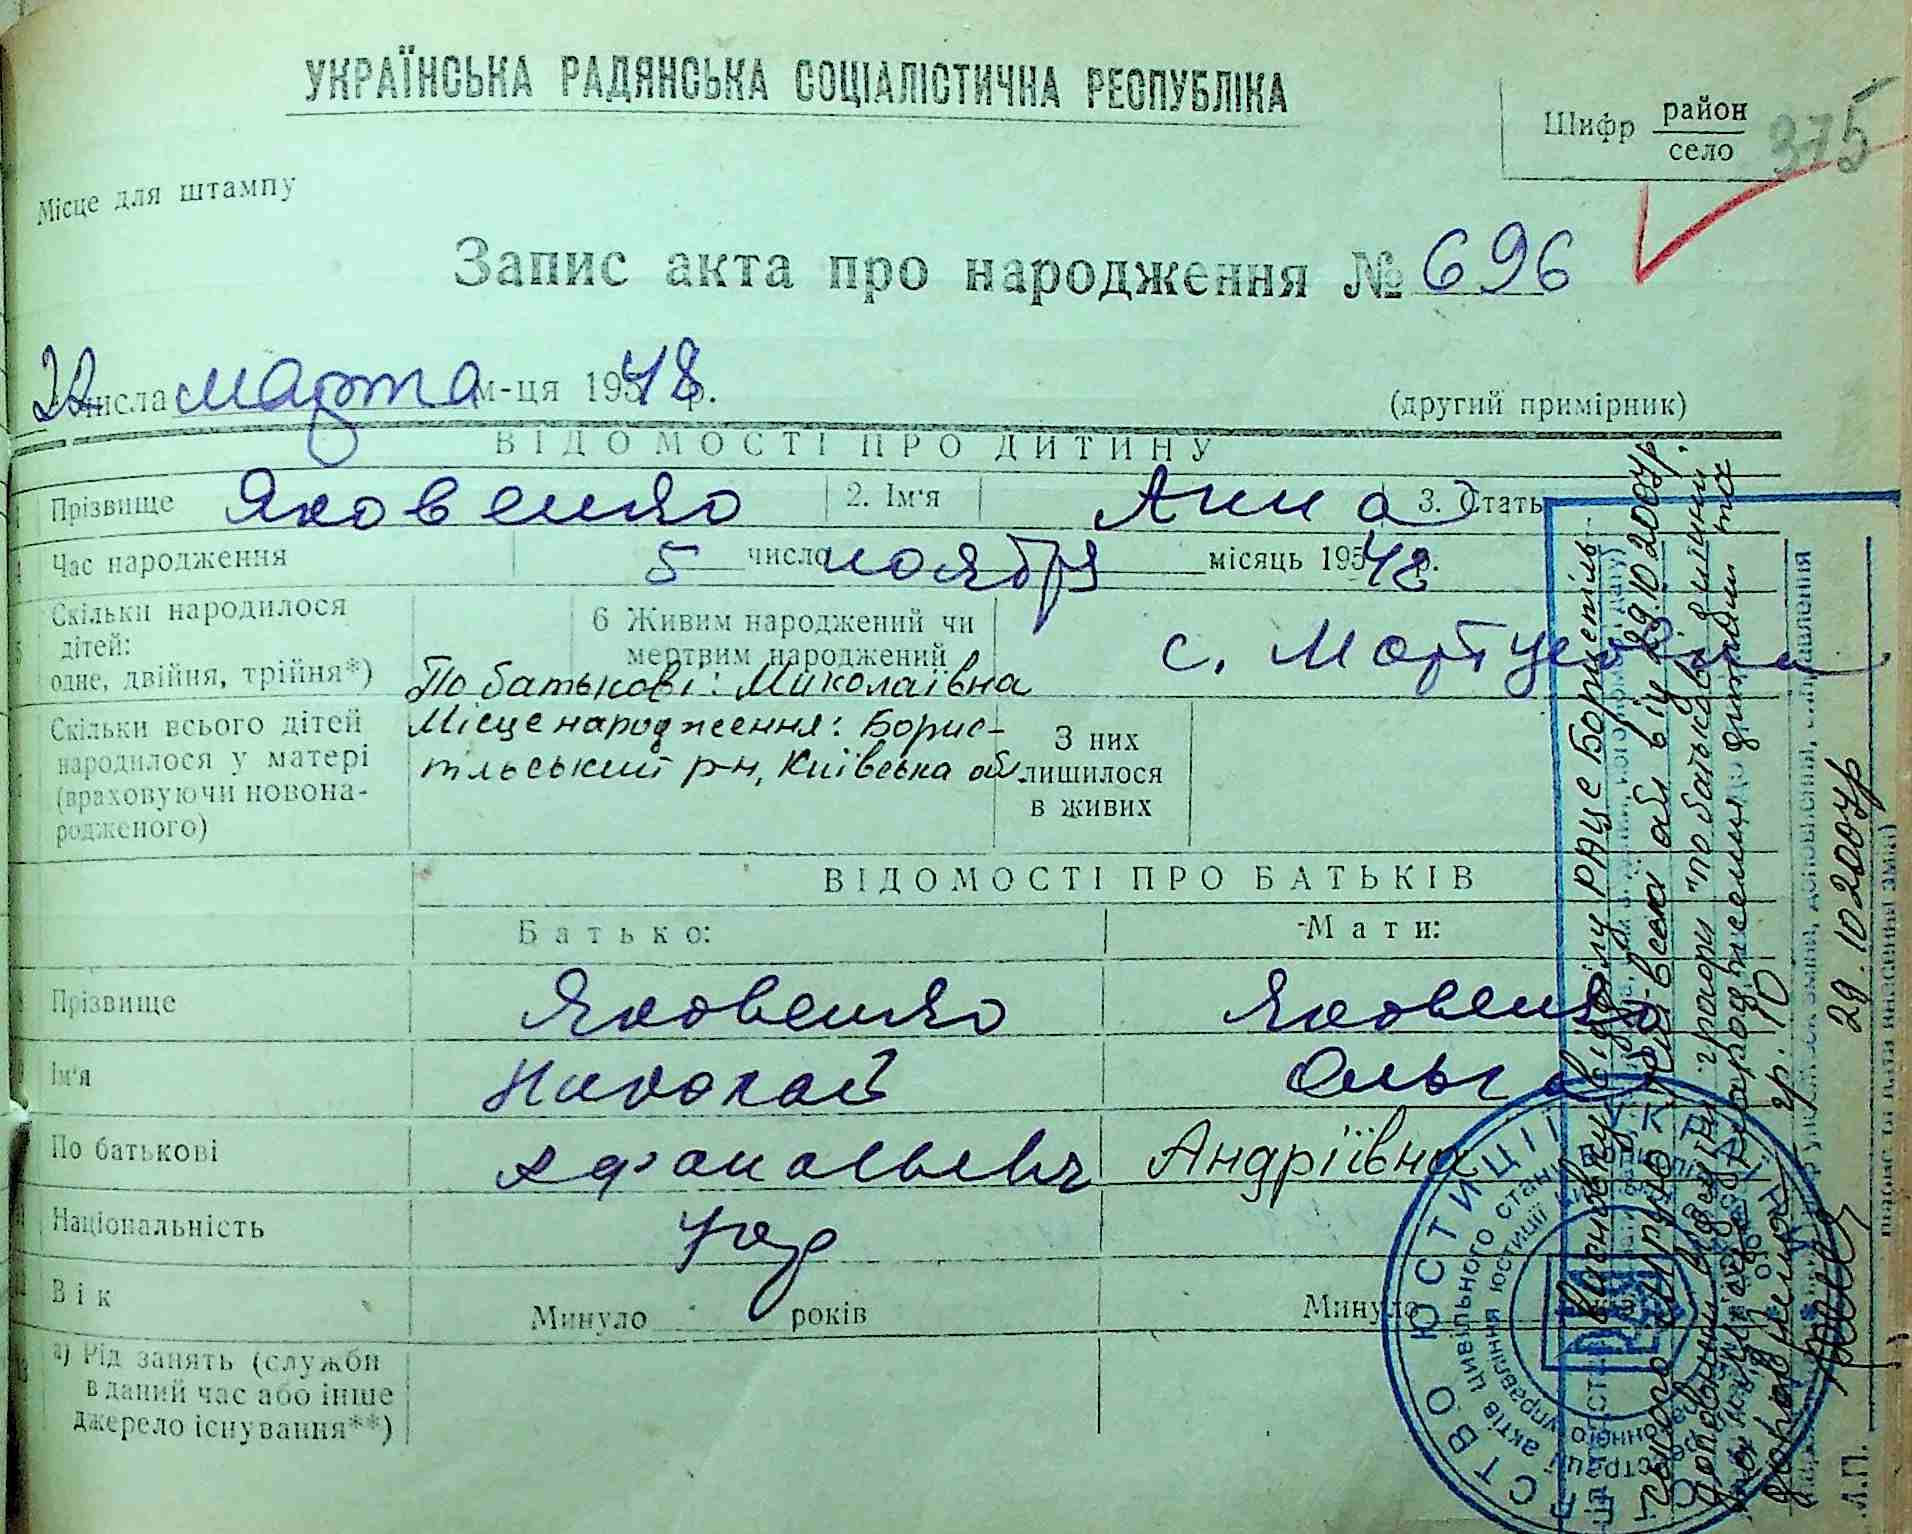 УКРАЇНСЬКА РАДЯНСЬКА СОЦІАЛІСТИЧНА РЕСПУБЛІКА
Шифр район
село
375
Місце для штампу
Запис акта про народження № 696
числа марта м-ця 1948 р.
(другий примірник)
ВІДОМОСТІ ПРО ДИТИНУ
Прізвище Яковенко 2. Ім'я Анна 3. Стать
Час народження 5 число ноября місяць 1948 р.
Скільки народилося
дітей:
одне, двійня, трійня*)
6 Живим народжений чи
мертвим народжений
с. Мартусовка
По батькові: Миколаївна
Місце народження: Борис-
пільський р-н, Київська обл
Скільки всього дітей
народилося у матері
(враховуючи новона-
родженого)
З них
лишилося
в живих
ВІДОМОСТІ ПРО БАТЬКІВ
Батько: Мати:
Прізвище Яковенко Яковенко
Ім'я Николай Ольга
По батькові Афанасьевич Андріївна
Національність укр
Вік Минуло років Минуло
а) Рід занять (служби
в даний час або інше
джерело існування**)
відділу РАЦС Бориспіль-
ської обл від 29.10.2007р.
графи "по батькові дитини
місце народження дитини
гр. 10
29.10.2007р
ЮСТИЦІЇ
актів цивільного стану
управління юстиції
Л.П.